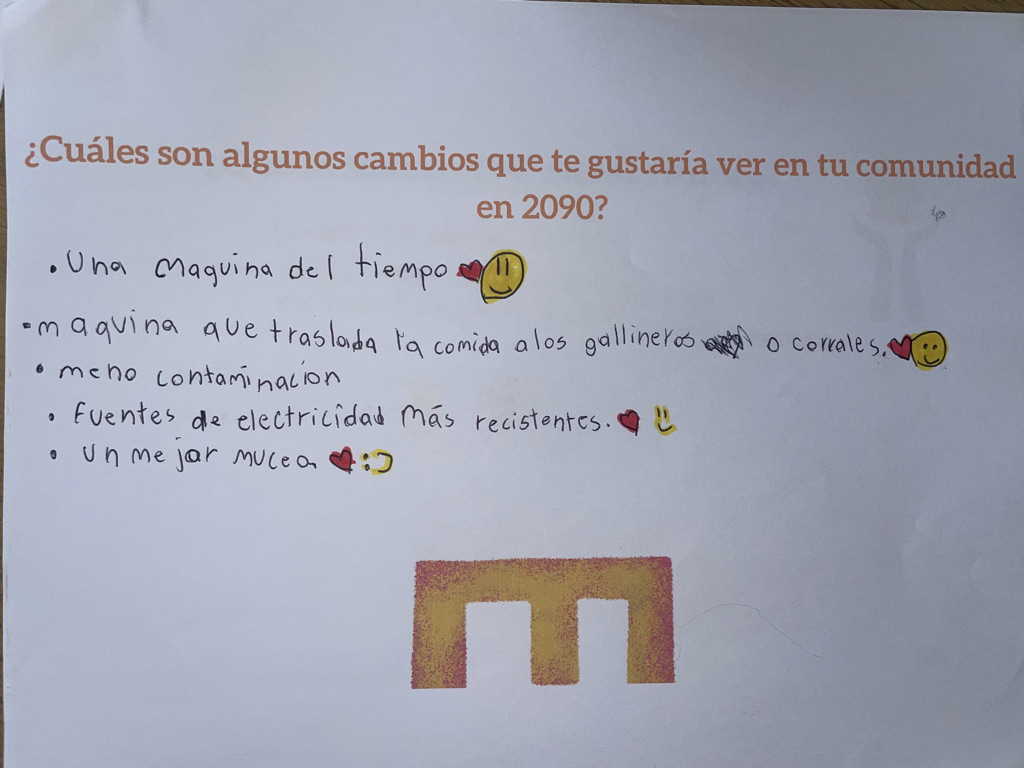 ¿Cuáles son algunos cambios que te gustaría ver en tu comunidad
en 2090?
• Una maquina del tiempo
• maquina que traslada la comida a los gallineros o corrales.
• meno contaminación
• Fuentes de electricidad más recistentes.
• un mejar mucea